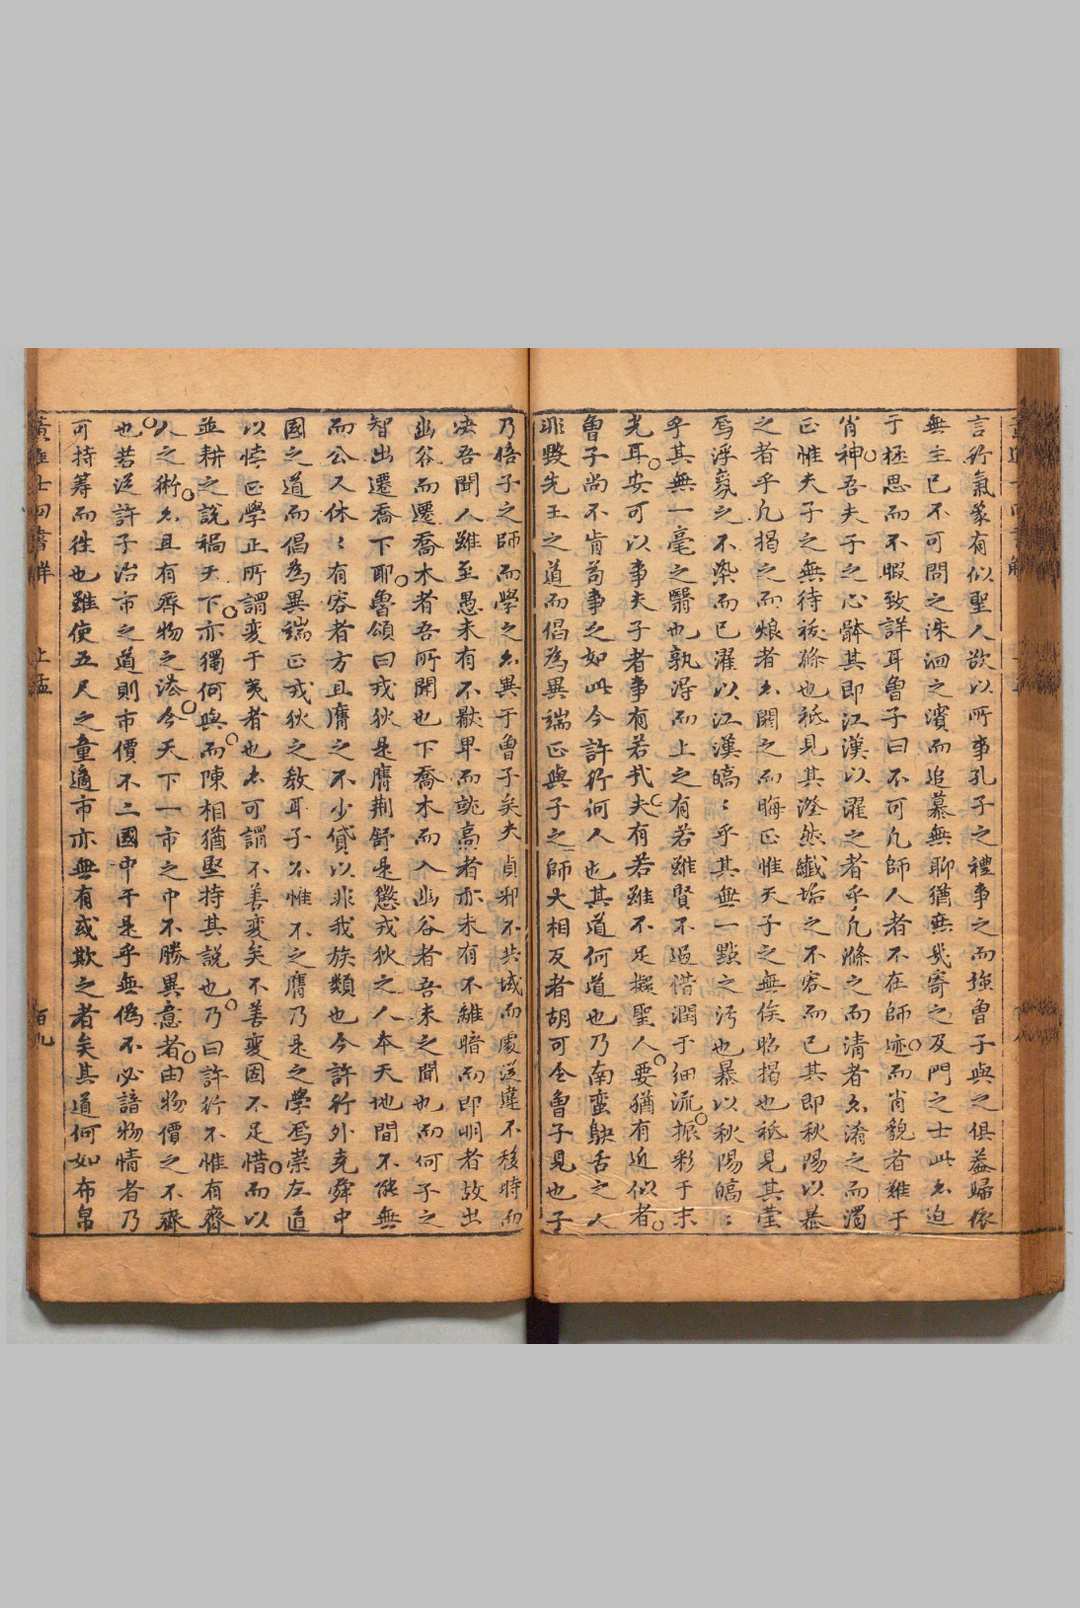 言行氣象有似聖人欲以所事孔子之禮事之而強曾子與之俱蓋歸依
無主已不可問之洙泗之濱而追慕無聊猶無幾寄之及門之士此亦迫
于極思而不暇致詳耳曾子曰不可凡師人者不在師迹而肖貌者難于
肖神吾夫子之心體其即江漢以濯之者乎凡滌之而清者亦淆之而濁
正惟夫子之無待祓滌也祗見其瀅然纖垢之不容而已其即秋陽以暴
之者乎凡揭之而煥者亦闇之而晦正惟夫子之無俟昭揭也祗見其瑩
焉浮氛之不染而已濯以江漢皜〻乎其無一點之污也暴以秋陽皜〻
乎其無一毫之翳也孰得而上之有若雖賢不過借潤于細流振彩于末
光耳安可以事夫子者事有若哉夫有若雖不足擬聖人要猶有近似者
魯子尚不肯苟事之如此今許行何人也其道何道也乃南蠻鴃舌之人
非毀先王之道而倡為異端正與子之師大相反者胡可令魯子見也子
乃倍子之師而學之亦異于魯子矣夫貞邪不共域而處從違不移時而
決吾聞人雖至愚未有不厭卑而就高者亦未有不離暗而即明者故出
幽谷而遷喬木者吾所聞也下喬木而入幽谷者吾未之聞也而何子之
智出遷喬下耶魯頌曰戎狄是膺荊舒是懲戎狄之人本天地間不能無
而公又休〻有容者方且膺之不少貸以非我族類也今許行外堯舜中
國之道而倡為異端正戎狄之教耳子不惟不之膺乃是之學焉崇左道
以悖正學正所謂变于夷者也亦可謂不善变矣不善变固不足惜而以
並耕之說禍天下亦獨何與而陳相猶堅持其說也乃曰許行不惟有齊
人之術亦且有齊物之法今天下一市之中不勝異意者由物價之不齊
也若從許子治市之道則市價不二國中于是乎無偽不必諳物情者乃
可持籌而往也雖使五尺之童適市亦無有或欺之者矣其道何如布帛
上孟
百九